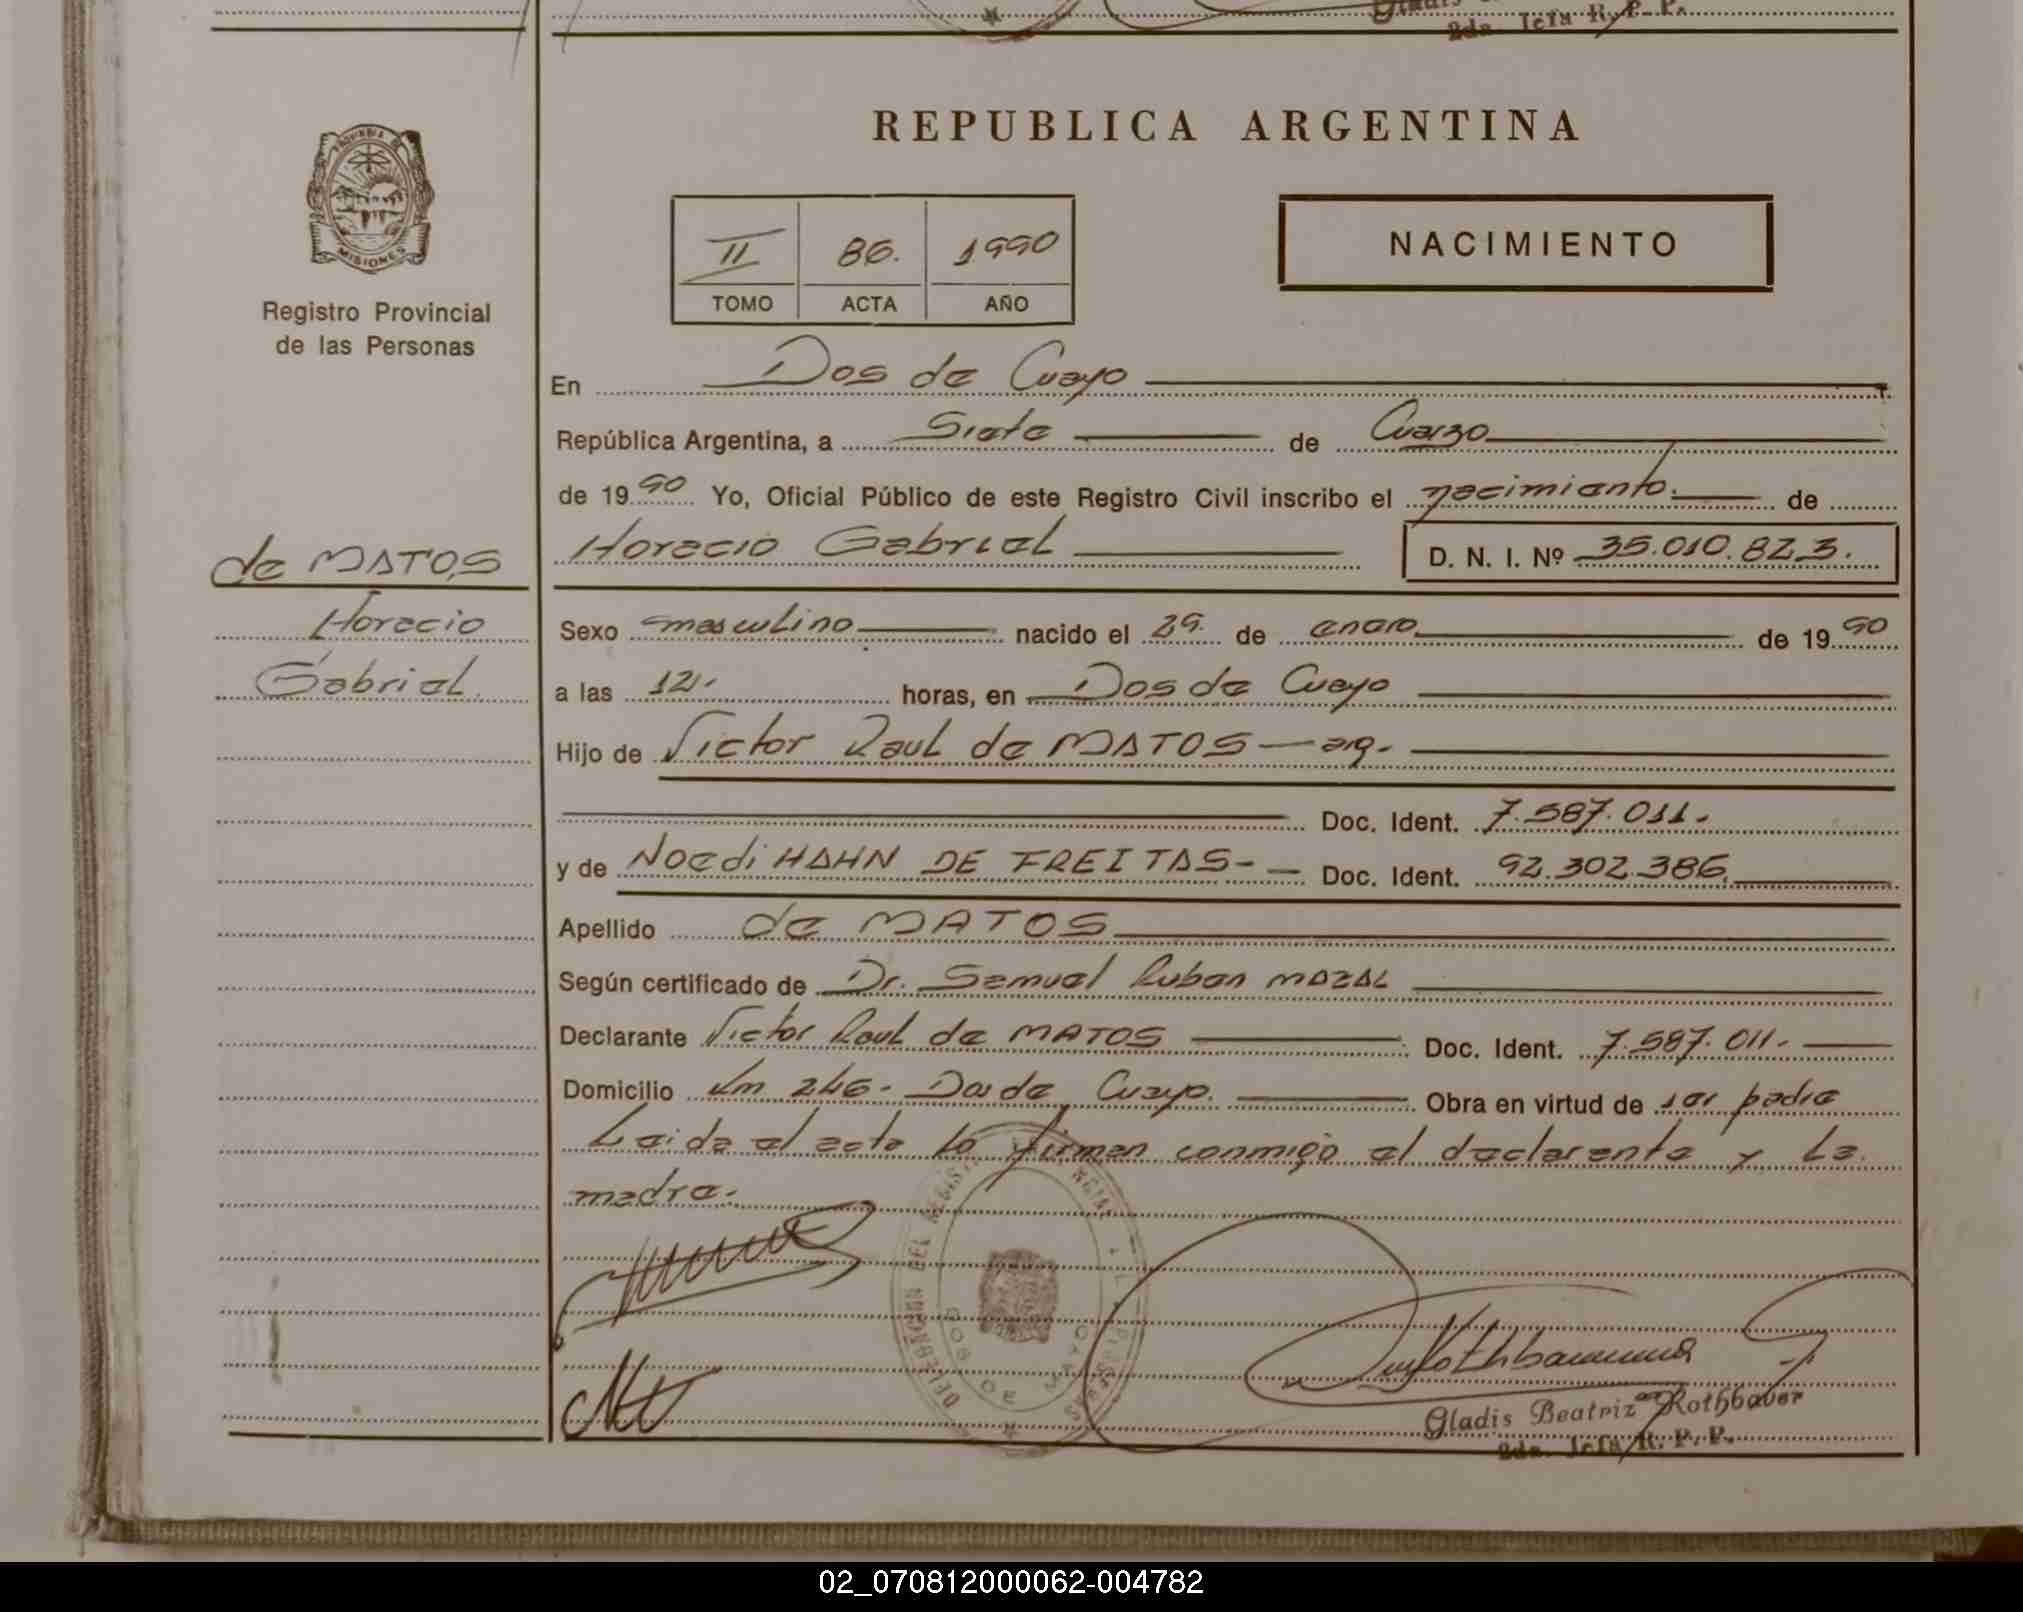 Gladis
2da. Jefa R. P. P.
REPUBLICA ARGENTINA
PROVINCIA DE
MISIONES
Registro Provincial
de las Personas
II 86. 1990
TOMO ACTA AÑO
NACIMIENTO
En Dos de Mayo
República Argentina, a Siete de Marzo
de 1990 Yo, Oficial Público de este Registro Civil inscribo el nacimiento. de
Horacio Gabriel D. N. I. Nº 35.010.823.
de MATOS
Horacio
Gabriel.
Sexo masculino nacido el 29. de enero de 1990
a las 12. horas, en Dos de Mayo
Hijo de Victor Raul de MATOS - arg.
Doc. Ident. 7.587.011.
y de Noedi HAHN DE FREITAS - Doc. Ident. 92.302.386.
Apellido de MATOS
Según certificado de Dr. Samuel Ruben MAZAL
Declarante Victor Raul de MATOS Doc. Ident. 7.587.011.
Domicilio Km 246 - Dos de Mayo. Obra en virtud de ser padre
Leida el acta la firman conmigo el declarante y la
madre.
DELEGACION DEL REGISTRO
DOS DE MAYO
Gladis Beatriz Rothbauer
2da. Jefa R. P. P.
02_070812000062-004782